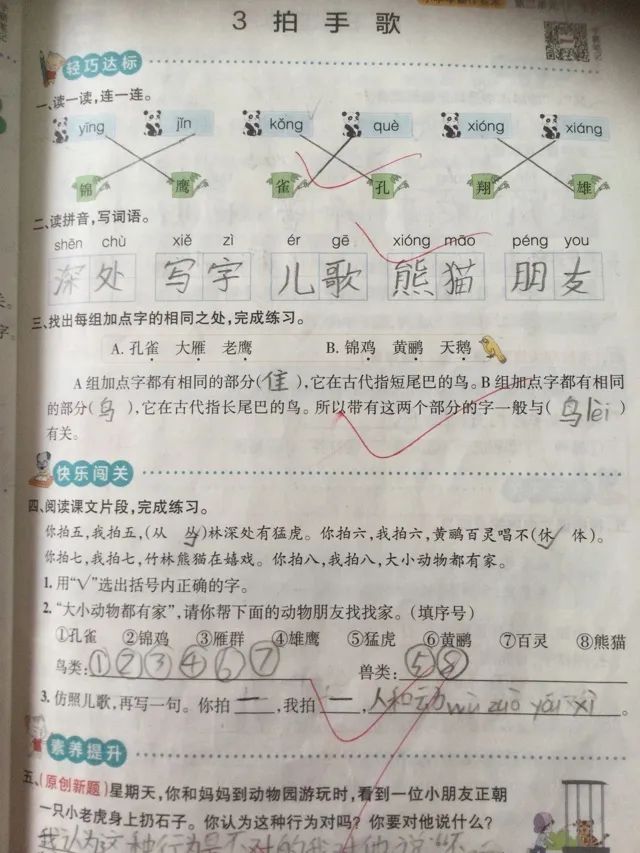 3 拍手歌
轻巧达标
一、读一读,连一连。
yīng jǐn kǒng què xióng xiáng
锦 鹰 雀 孔 翔 雄
二、读拼音,写词语。
shēn chù xiě zì ér gē xióng māo péng you
深处 写字 儿歌 熊猫 朋友
三、找出每组加点字的相同之处,完成练习。
A. 孔雀 大雁 老鹰 B. 锦鸡 黄鹂 天鹅
A 组加点字都有相同的部分(隹),它在古代指短尾巴的鸟。B 组加点字都有相同
的部分(鸟),它在古代指长尾巴的鸟。所以带有这两个部分的字一般与(鸟lèi)
有关。
快乐闯关
四、阅读课文片段,完成练习。
你拍五,我拍五,(从 丛)林深处有猛虎。你拍六,我拍六,黄鹂百灵唱不(休 体)。
你拍七,我拍七,竹林熊猫在嬉戏。你拍八,我拍八,大小动物都有家。
1. 用“√”选出括号内正确的字。
2. “大小动物都有家”,请你帮下面的动物朋友找找家。(填序号)
①孔雀 ②锦鸡 ③雁群 ④雄鹰 ⑤猛虎 ⑥黄鹂 ⑦百灵 ⑧熊猫
鸟类:①②③④⑥⑦ 兽类:⑤⑧
3. 仿照儿歌,再写一句。你拍一,我拍一,人和动wù zuò yóu xì。
素养提升
五、(原创新题)星期天,你和妈妈到动物园游玩时,看到一位小朋友正朝
一只小老虎身上扔石子。你认为这种行为对吗?你要对他说什么?
我认为这种行为是不对的我对他说“